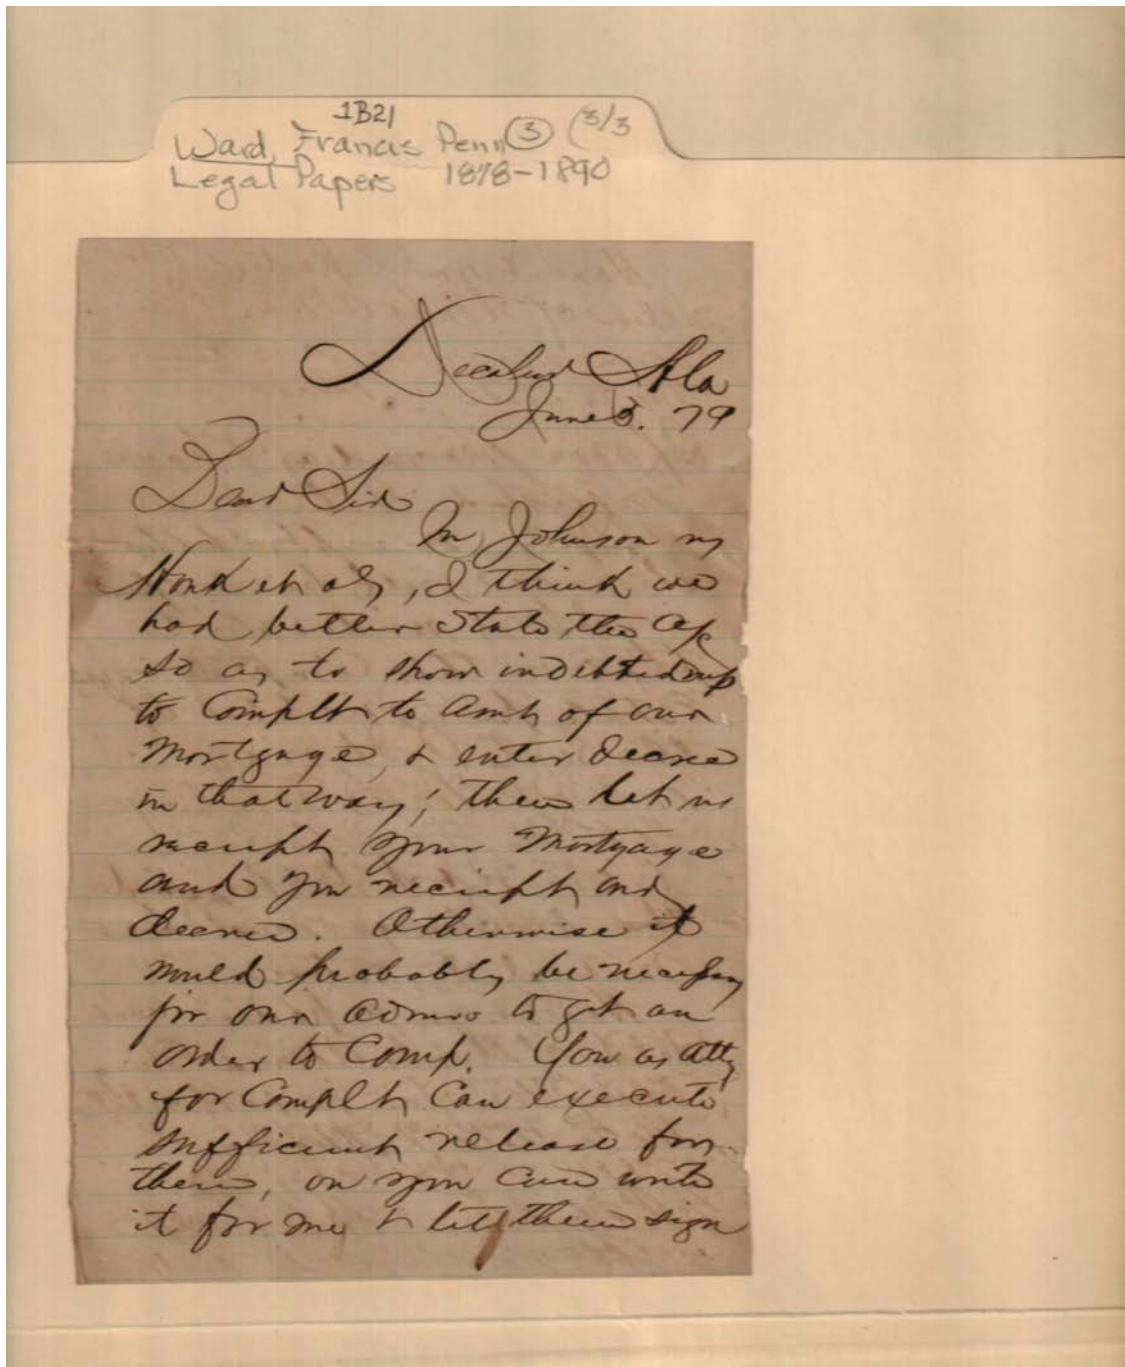 1B21
Ward, Francis Penn ③ (3/3
Legal Papers 1878-1890
Decatur Ala
June 3. 79
Dear Sir
In Johnson vs
et als, I think we
had better State the a/c
so as to show indebtedness
to Complt to amt of our
Mortgage, & enter decree
in that way; then let us
receipt your Mortgage
and you receipt our
decree. Otherwise it
would probably be necessary
for our admr to get an
order to Comp. You as atty
for Complt Can execute
sufficient release for
them, or you can write
it for me & let them sign